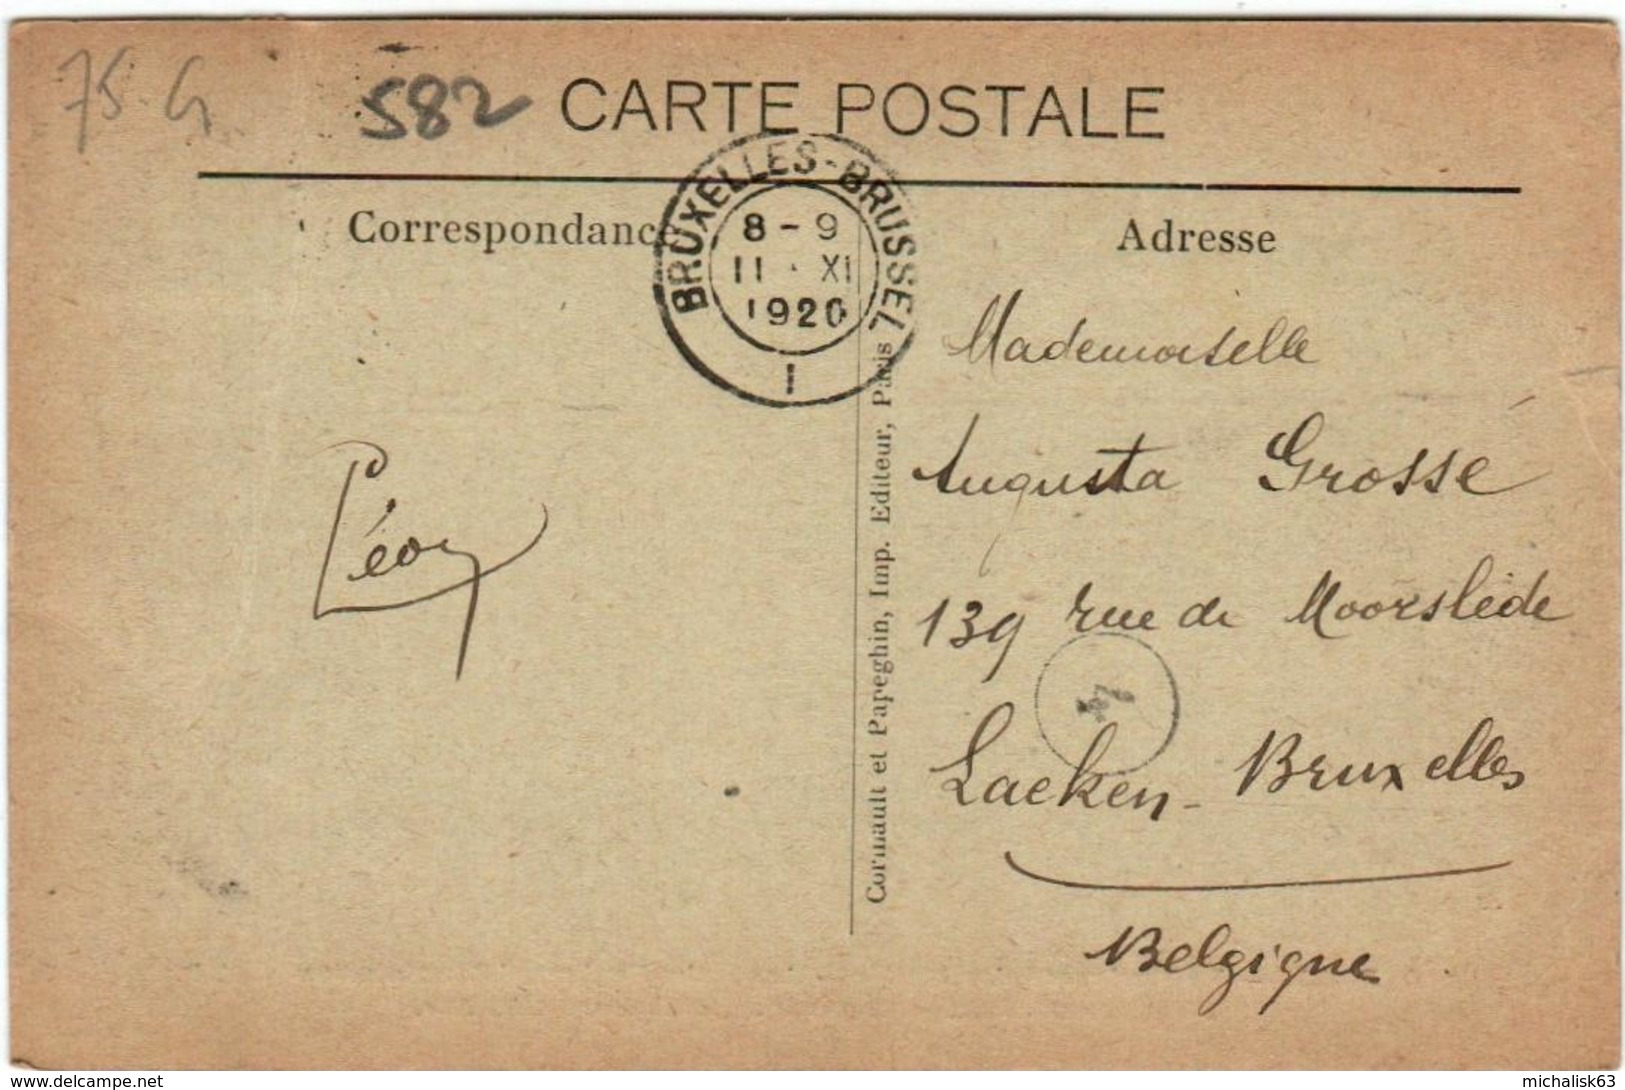 75 G
582
CARTE POSTALE
BRUXELLES-BRUSSEL
8 - 9
11 · XI
1920
1
Correspondance
Adresse
Léon
Cormault et Papeghin, Imp. Editeur, Paris
Mademoiselle
Augusta Grossé
139 rue de Moorslede
4
Laeken - Bruxelles
Belgique
www.delcampe.net
michalisk63